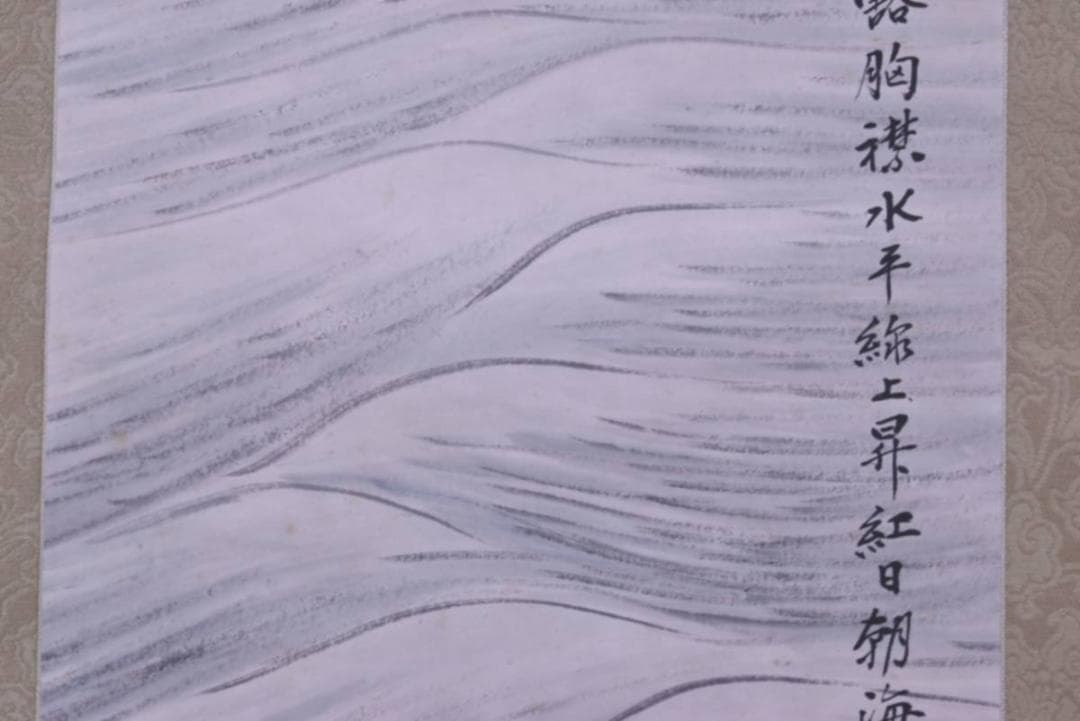 豁胸襟水平線上昇紅日朝海